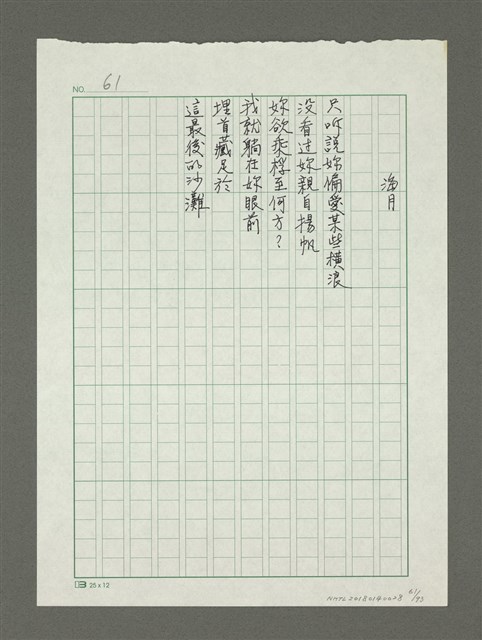 NO. 61
海月
只听說妳偏愛某些橫浪
没看过妳親自揚帆
妳欲乘桴至何方？
我就躺在妳眼前
埋首藏足於
這最後的沙灘
25 x 12
NMTL20180140028 61/93